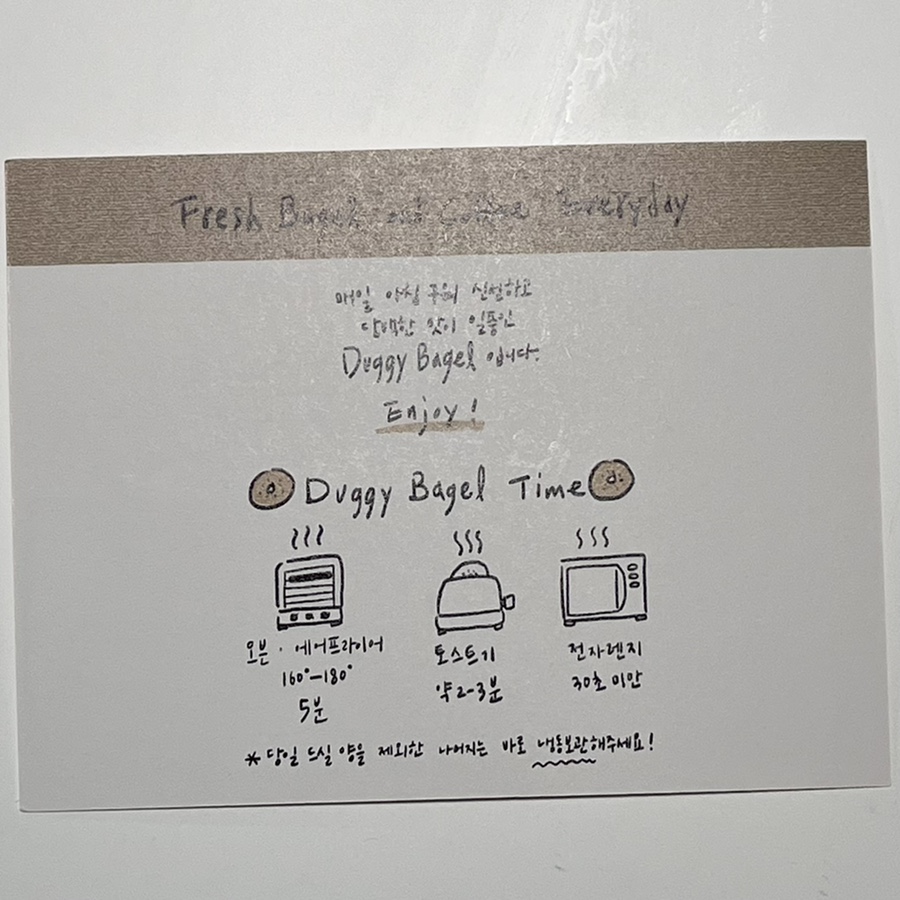 Fresh Bagel and Coffee Everyday
매일 아침 구워 신선하고
담백한 맛이 일품인
Duggy Bagel 입니다.
Enjoy!
Duggy Bagel Time
오븐 · 에어프라이어
160°-180°
5분
토스트기
약 2-3분
전자렌지
30초 미만
* 당일 드실 양을 제외한 나머지는 바로 냉동보관해주세요!